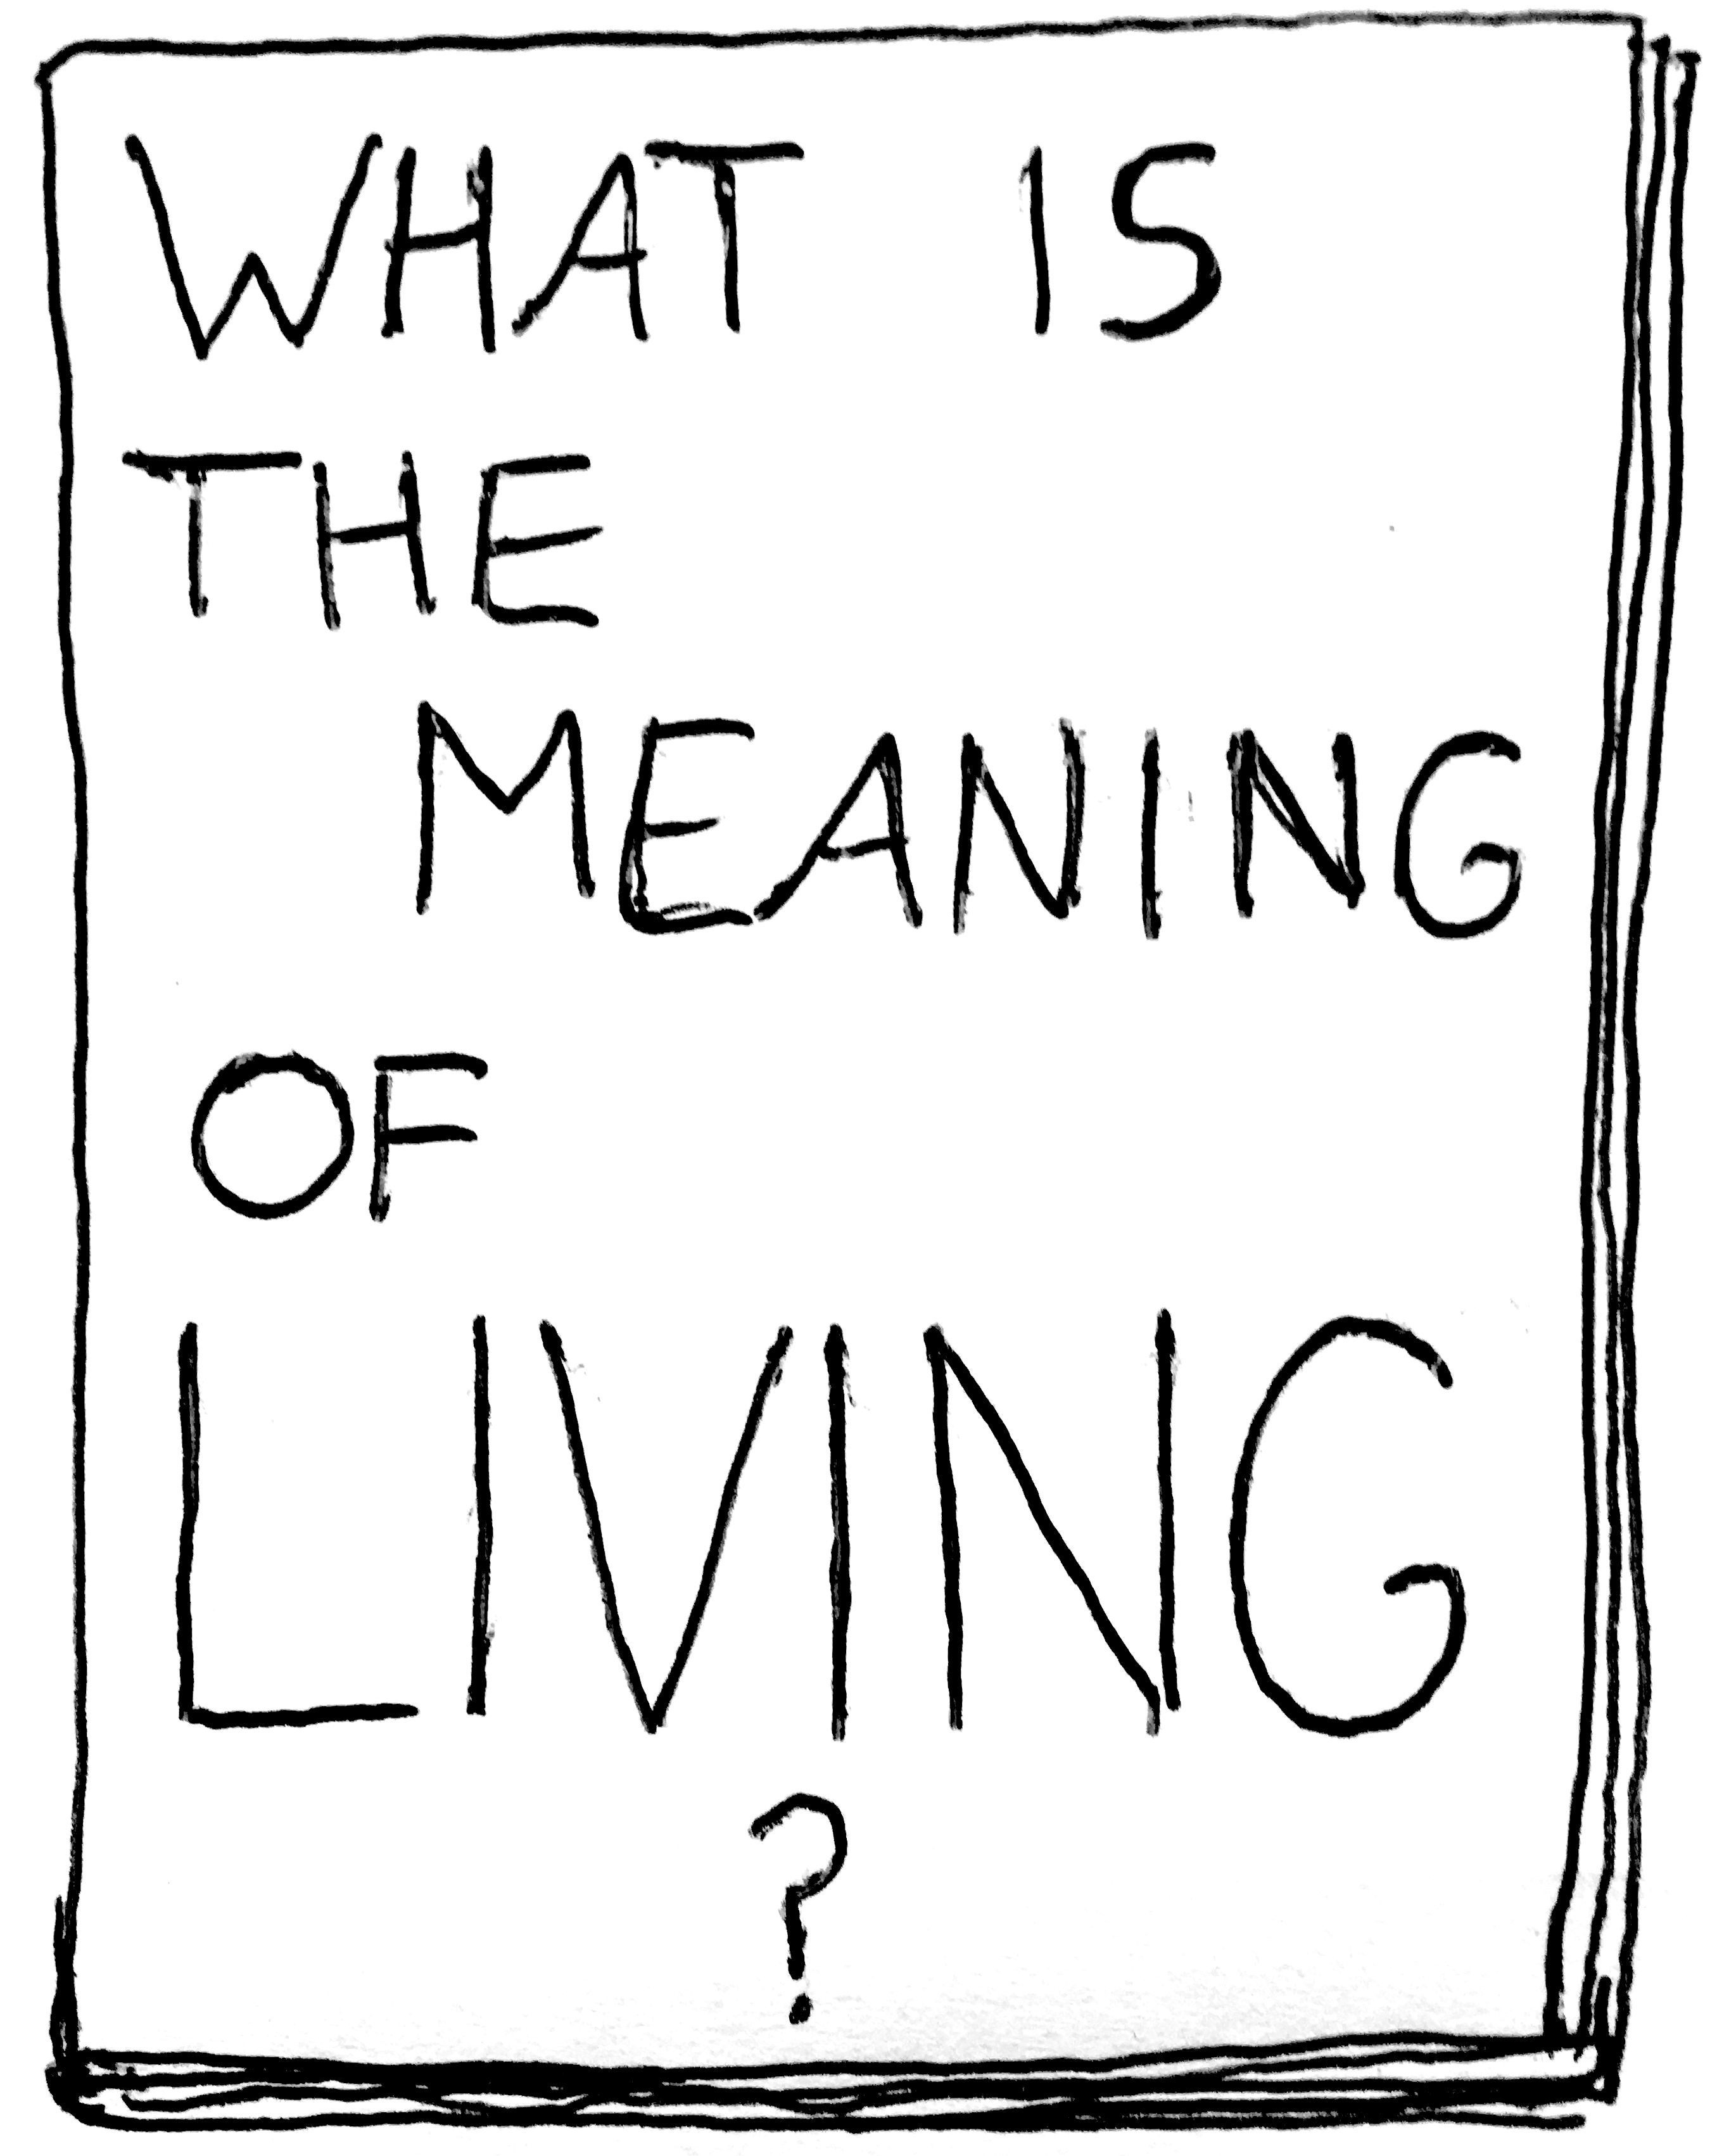 WHAT IS
THE
MEANING
OF
LIVING
?